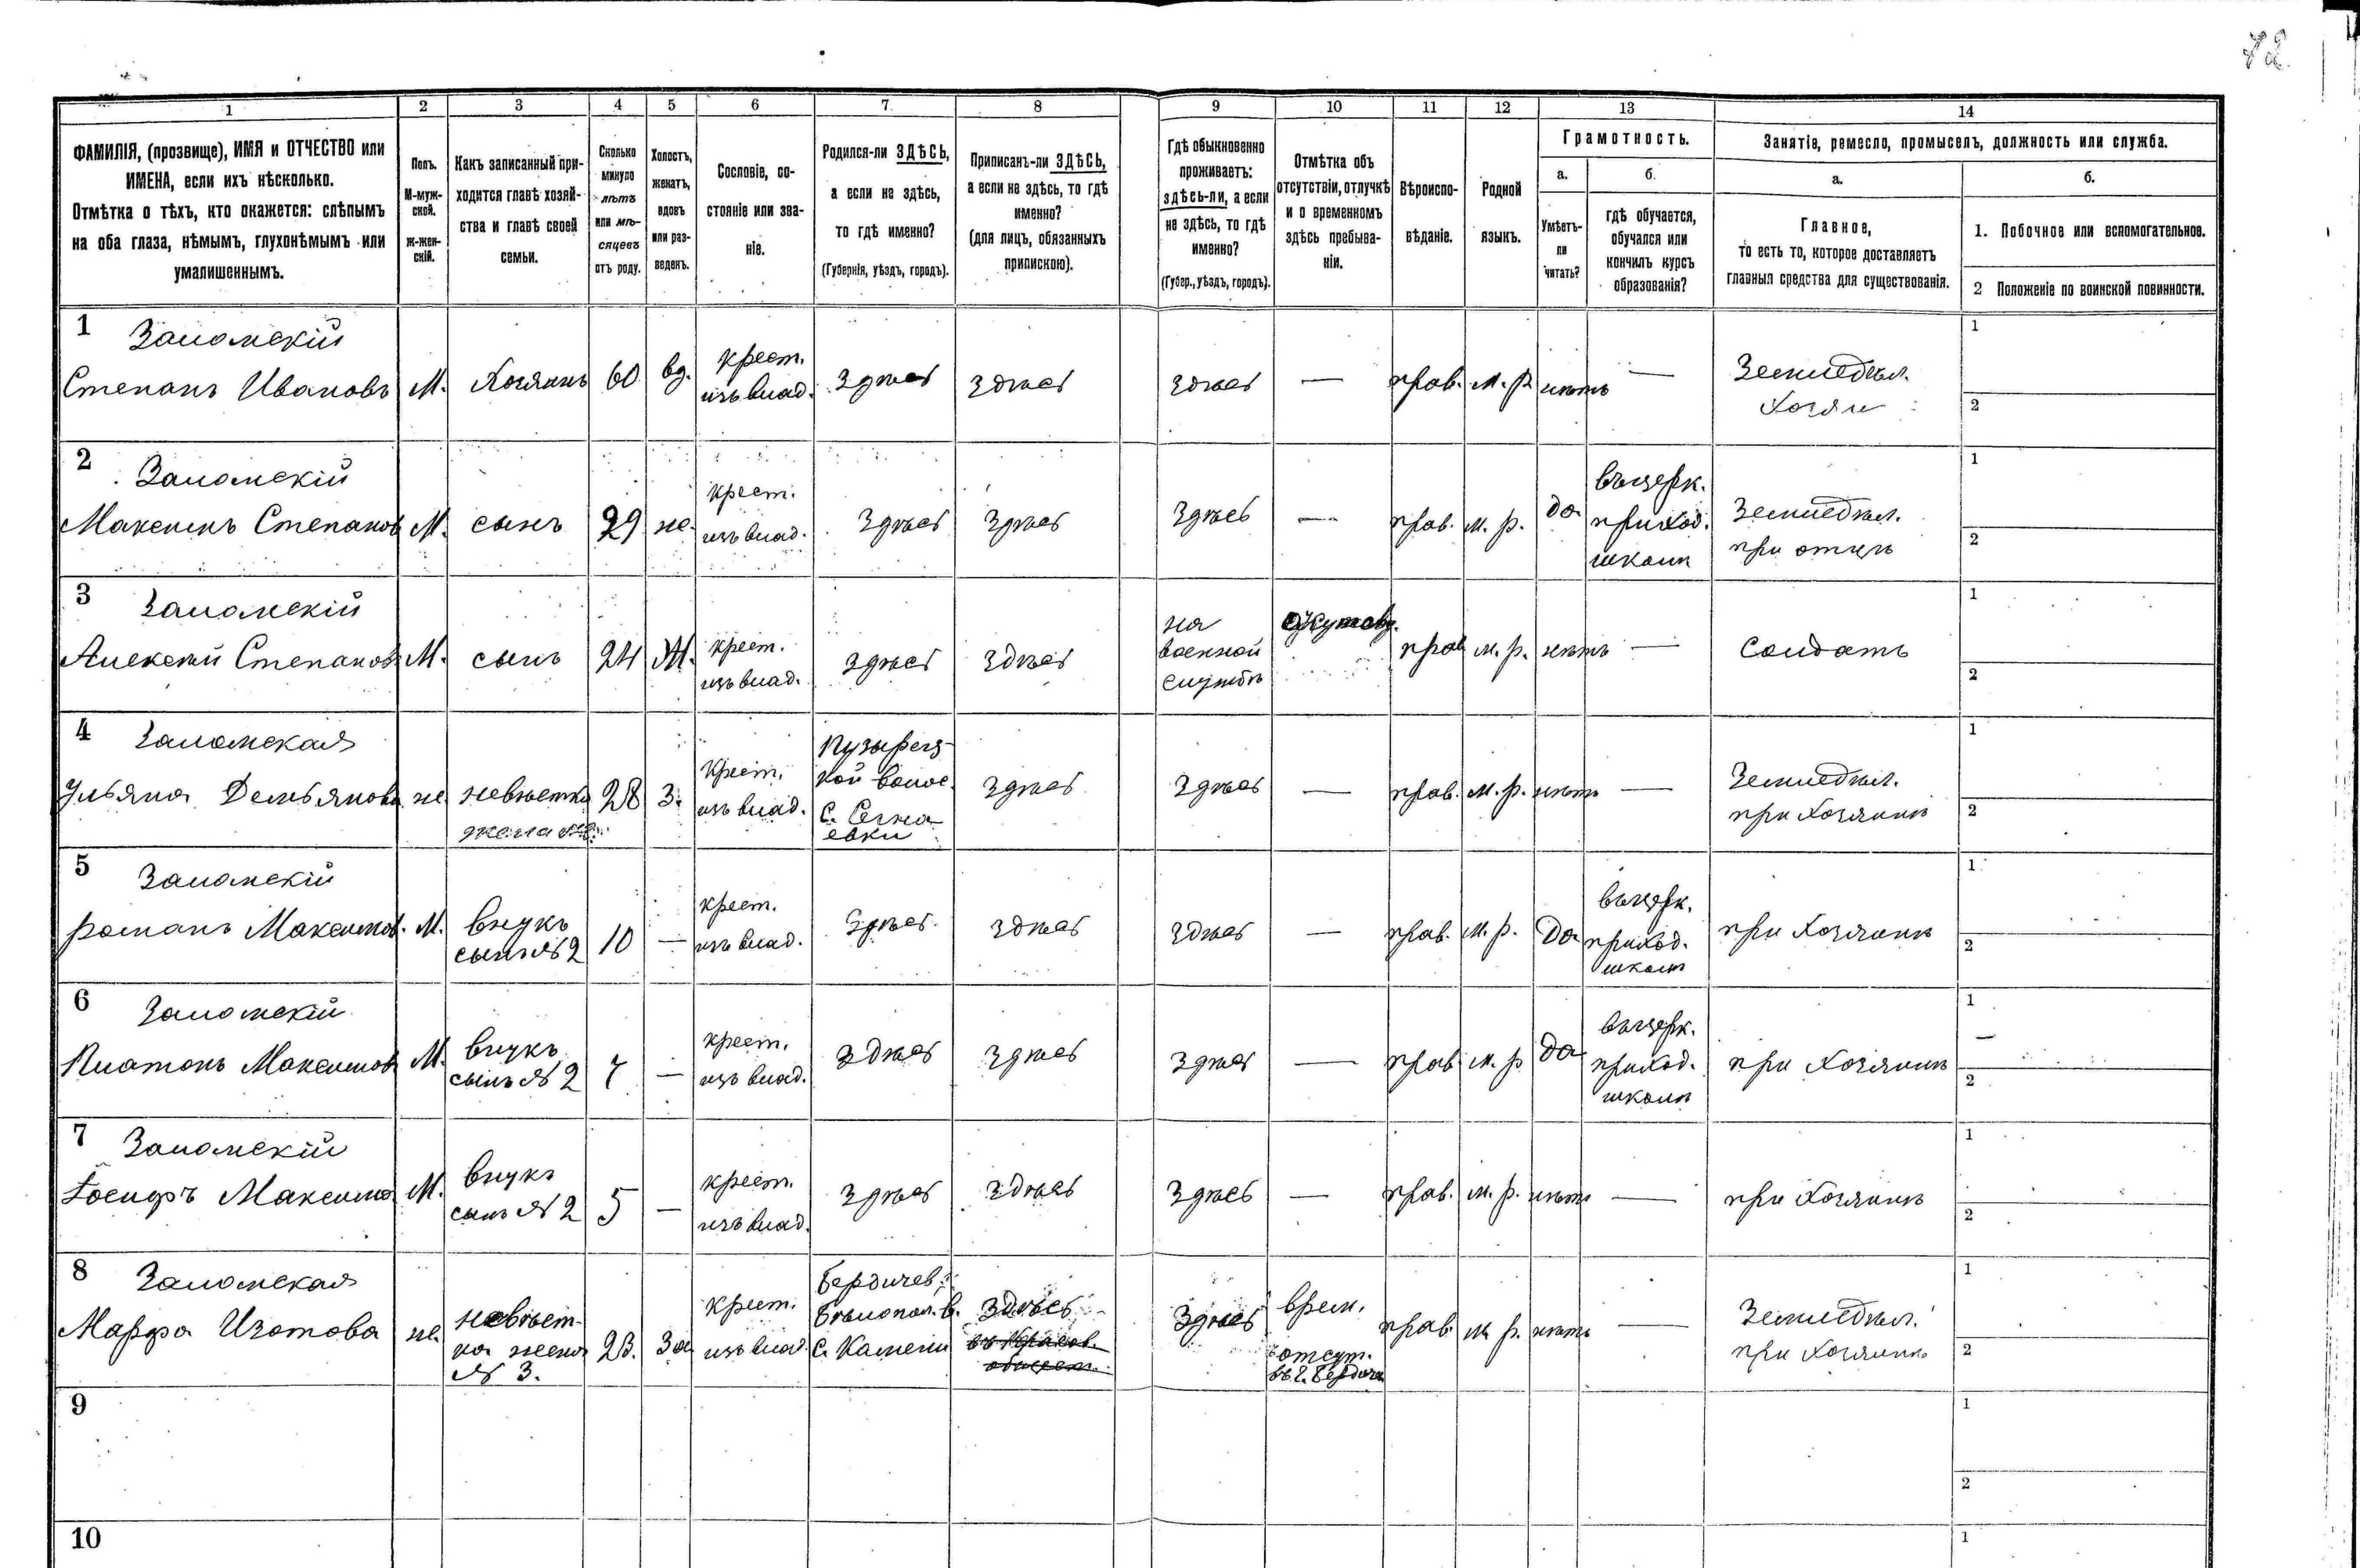 72
1 2 3 4 5 6 7 8 9 10 11 12 13 14
ФАМИЛІЯ, (прозвище), ИМЯ и ОТЧЕСТВО или
ИМЕНА, если ихъ нѣсколько.
Отмѣтка о тѣхъ, кто окажется: слѣпымъ
на оба глаза, нѣмымъ, глухонѣмымъ или
умалишеннымъ.
Полъ.
М-муж-
ской.
ж-жен-
скій.
Какъ записанный при-
ходится главѣ хозяй-
ства и главѣ своей
семьи.
Сколько
минуло
лѣтъ
или мѣ-
сяцевъ
отъ роду.
Холостъ,
женатъ,
вдовъ
или раз-
веденъ.
Сословіе, со-
стояніе или зва-
ніе.
Родился-ли ЗДѢСЬ,
а если не здѣсь,
то гдѣ именно?
(Губернія, уѣздъ, городъ).
Приписанъ-ли ЗДѢСЬ,
а если не здѣсь, то гдѣ
именно?
(для лицъ, обязанныхъ
припискою).
Гдѣ обыкновенно
проживаетъ:
здѣсь-ли, а если
не здѣсь, то гдѣ
именно?
(Губер., уѣздъ, городъ).
Отмѣтка объ
отсутствіи, отлучкѣ
и о временномъ
здѣсь пребыва-
ніи.
Вѣроиспо-
вѣданіе.
Родной
языкъ.
Грамотность.
а.
Умѣетъ-
ли
читать?
б.
гдѣ обучается,
обучался или
кончилъ курсъ
образованія?
Занятіе, ремесло, промыселъ, должность или служба.
а.
Главное,
то есть то, которое доставляетъ
главныя средства для существованія.
б.
1. Побочное или вспомогательное.
2 Положеніе по воинской повинности.
1 Заломскій
Степанъ Ивановъ
М.
Хозяинъ
60
вд.
крест.
изъ влад.
Здѣсь
здѣсь
здѣсь
—
прав.
м. р.
нѣтъ
—
Земледѣл.
1
2
2 Заломскій
Максимъ Степановъ
М.
сынъ
29
же.
крест.
изъ влад.
Здѣсь
Здѣсь
Здѣсь
—
прав.
м. р.
да
въ церк.
приход.
школѣ
Земледѣл.
при отцѣ
1
2
3 Заломскій
Алексѣй Степановъ
М.
сынъ
24
Ж.
крест.
изъ влад.
здѣсь
здѣсь
на
военной
службѣ
прав
м. р.
нѣтъ
—
Солдатъ
1
2
4 Заломская
Ульяна Демьянова
же.
невѣстка
28
З.
крест.
изъ влад.
Пузырец-
кой волос.
С.
здѣсь
Здѣсь
—
прав.
м. р.
нѣтъ
—
Земледѣл.
при хозяинѣ
1
2
5 Заломскій
романъ Максимов.
М.
внукъ
сынъ № 2
10
—
крест.
изъ влад.
Здѣсь
здѣсь
здѣсь
—
прав.
м. р.
Да
въ церк.
приход.
школѣ
при хозяинѣ
1
2
6 Заломскій
Платонъ Максимовъ
М.
внукъ
сынъ № 2
7
—
крест.
изъ влад.
здѣсь
здѣсь
здѣсь
—
прав
м. р
да
въ церк.
приход.
школѣ
при хозяинѣ
1
—
2
7 Заломскій
Іосифъ Максимо
М.
внукъ
сынъ № 2
5
—
крест.
изъ влад.
здѣсь
здѣсь
здѣсь
—
прав.
м. р.
нѣтъ
—
при хозяинѣ
1
2
8 Заломская
Марфа Изотова
же.
невѣст-
ка жена
№ 3.
23.
За
крест.
изъ влад.
Бердичев.
Бѣлопол. в.
С. Камени
здѣсь
Здѣсь
врем.
отсут.
въ г. Бердичев
прав.
м. р.
нѣтъ
—
Земледѣл.
при хозяинѣ
1
2
9
1
2
10
1